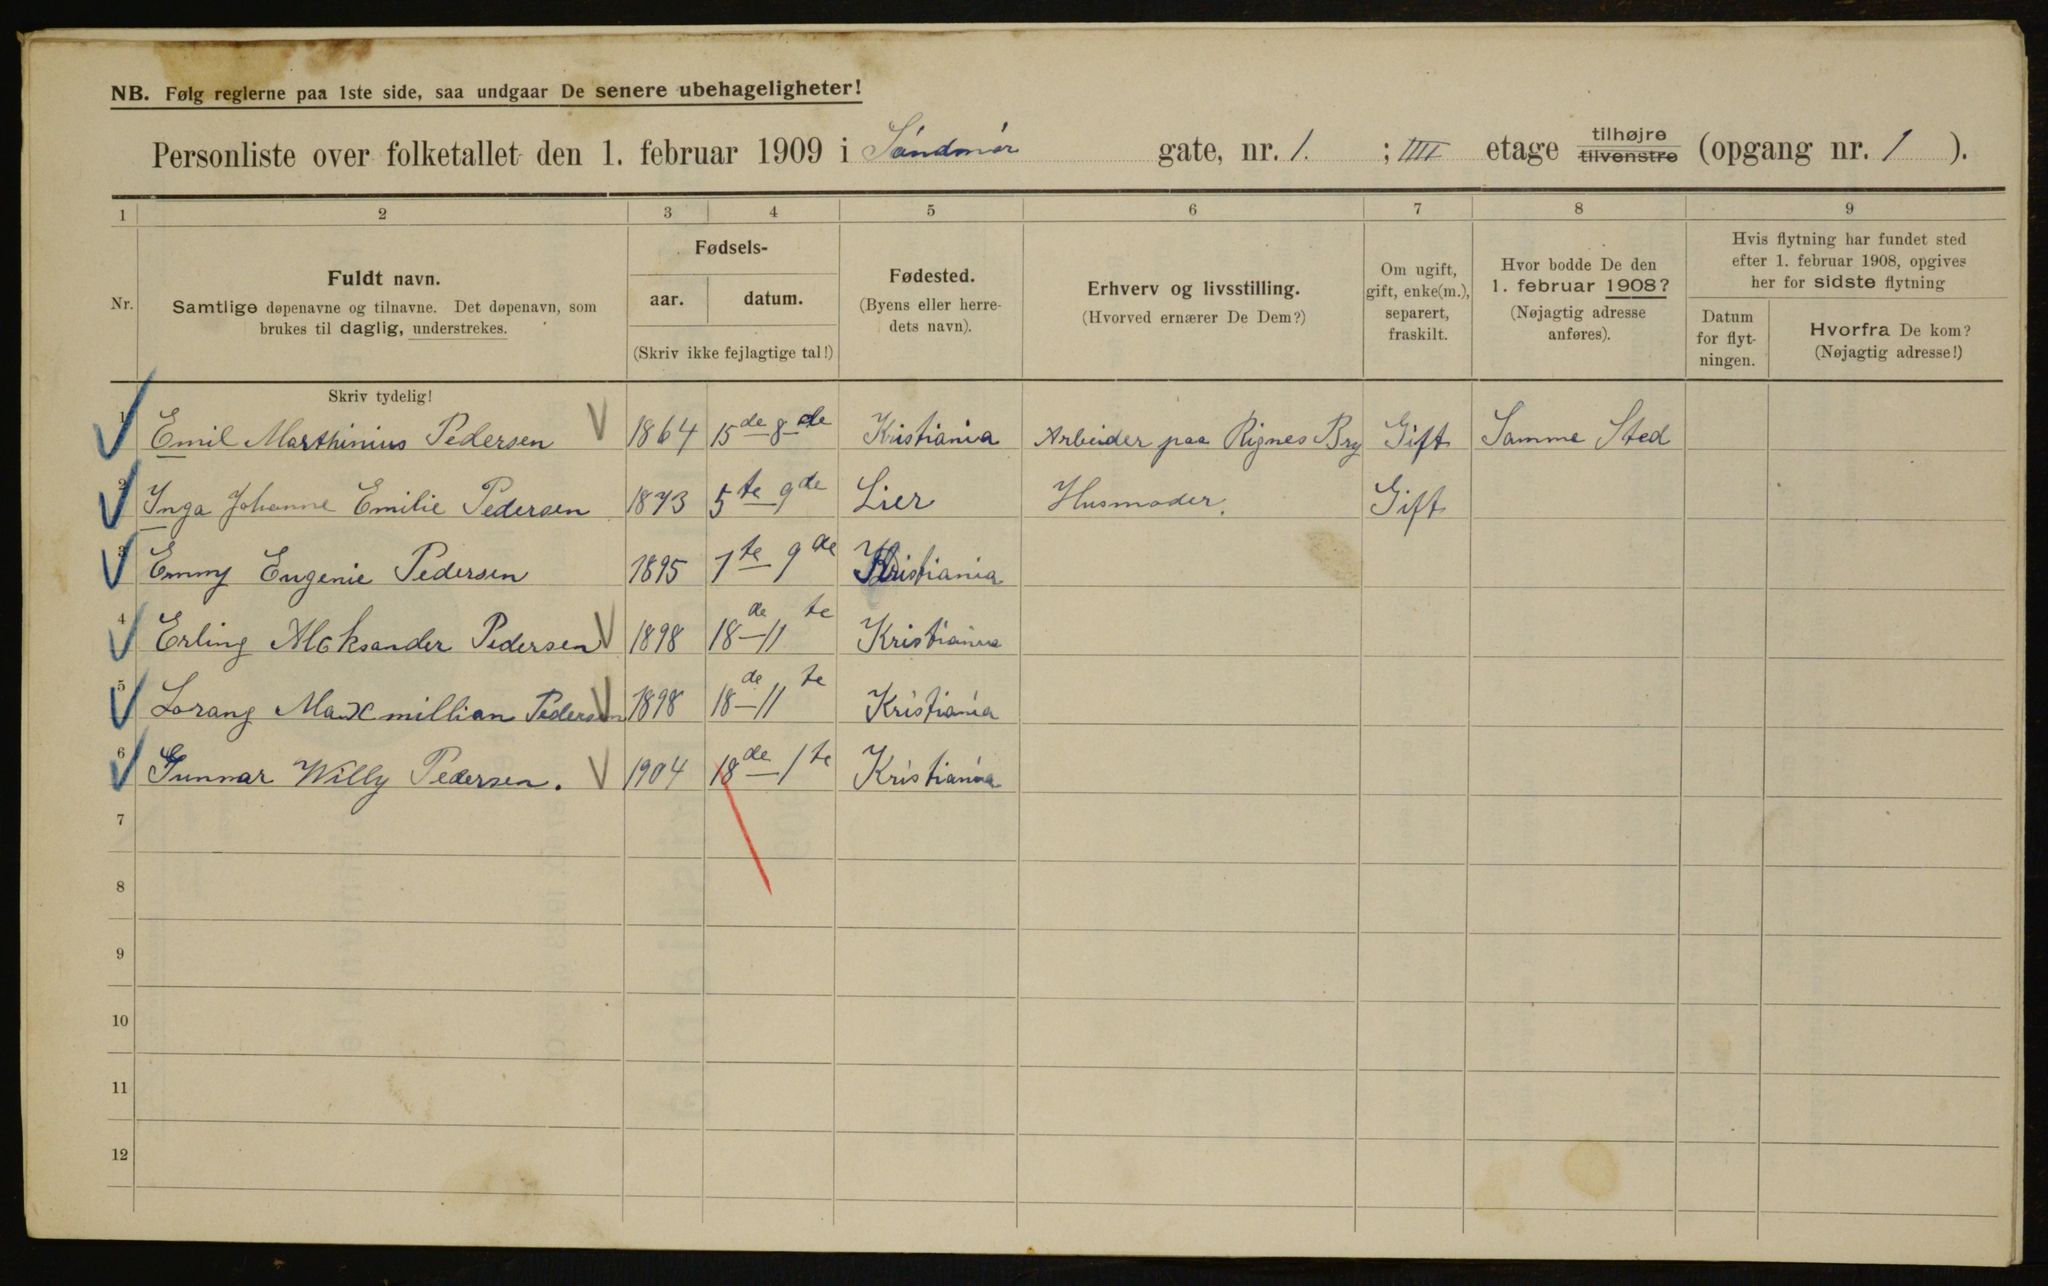 NB. Følg reglerne paa 1ste side, saa undgaar De senere ubehageligheter!
Personliste over folketallet den 1. februar 1909 i Söndmör gate, nr. 1. ; IIII etage tilhøjre tilvenstre (opgang nr. 1 ).
1 2 3 4 5 6 7 8 9
Nr.
Fuldt navn.
Samtlige døpenavne og tilnavne. Det døpenavn, som
brukes til daglig, understrekes.
Fødsels-
aar. datum.
(Skriv ikke fejlagtige tal!)
Fødested.
(Byens eller herre-
dets navn).
Erhverv og livsstilling.
(Hvorved ernærer De Dem?)
Om ugift,
gift, enke(m.),
separert,
fraskilt.
Hvor bodde De den
1. februar 1908?
(Nøjagtig adresse
anføres).
Hvis flytning har fundet sted
efter 1. februar 1908, opgives
her for sidste flytning
Datum
for flyt-
ningen.
Hvorfra De kom?
(Nøjagtig adresse!)
Skriv tydelig!
1 Emil Marthinius Pedersen 1864 15de 8de Kristiania Arbeider paa Rignes Bry Gift Samme Sted
2 Inga Johanne Emilie Pedersen 1873 5te 9de Lier Husmoder. Gift
3 Emmy Eugenie Pedersen 1895 7te 9de Kristiania
4 Erling Aleksander Pedersen 1898 18de-11te Kristiania
5 Lorang Maxmillian Pedersen 1898 18de-11te Kristiania
6 Gunnar Willy Pedersen. 1904 18de-1te Kristiania
7
8
9
10
11
12